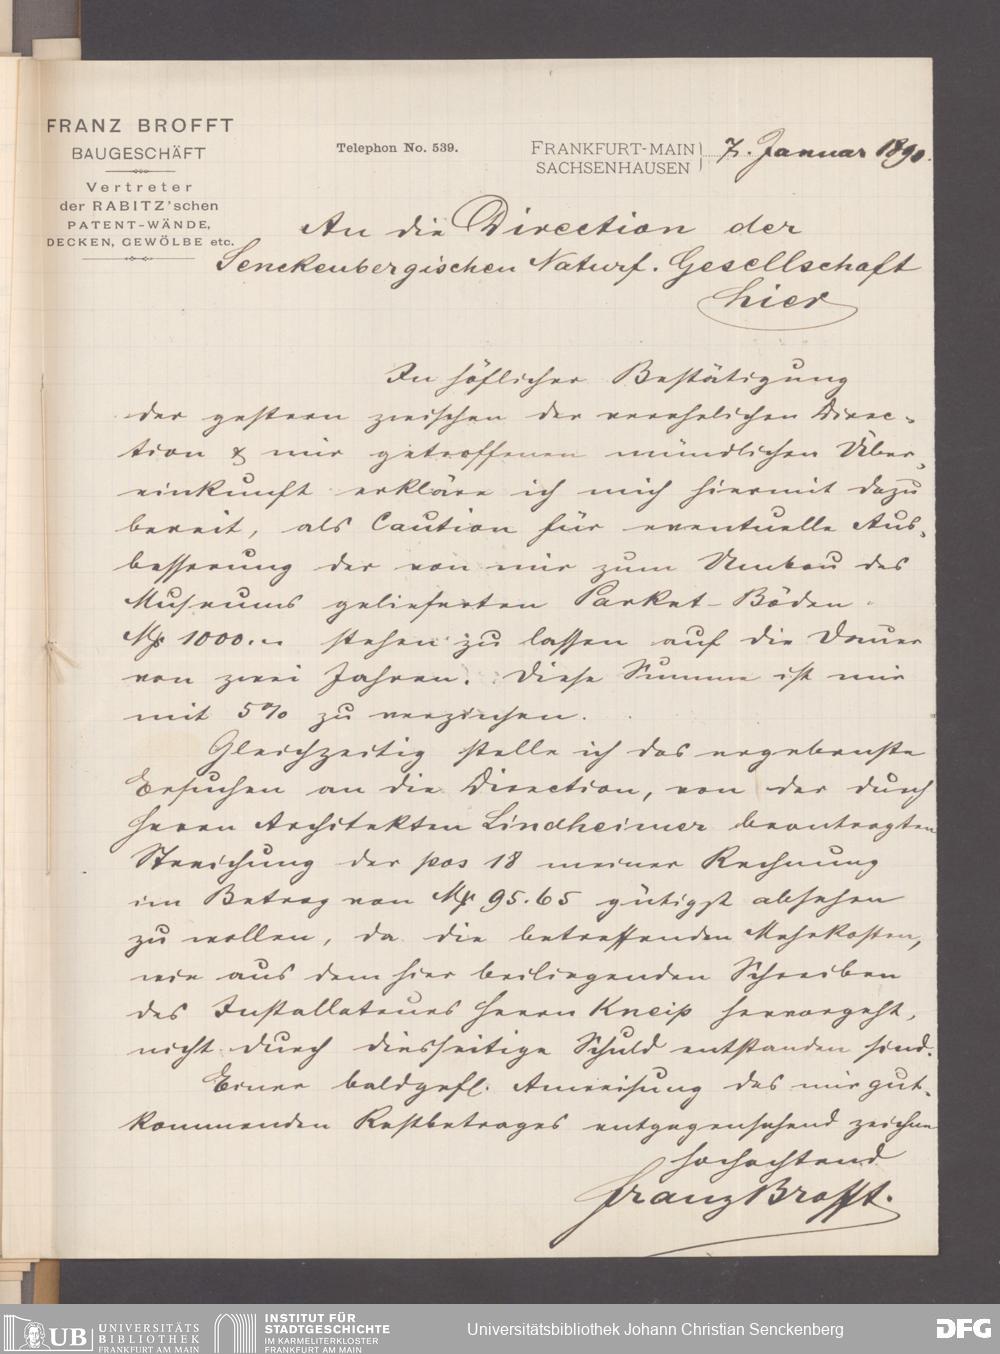 FRANZ BROFFT
BAUGESCHÄFT
Vertreter
der RABITZ'schen
PATENT-WÄNDE,
DECKEN, GEWÖLBE etc.
Telephon No. 539.
FRANKFURT-MAIN
SACHSENHAUSEN
7. Januar 1890.
An die Direction der
Senckenbergischen Naturf. Gesellschaft
hier
In höflicher Bestätigung
der gestern zwischen der verehrlichen Direc-
tion & mir getroffenen mündlichen Über-
einkunft erkläre ich mich hiermit dazu
bereit, als Caution für eventuelle Aus-
besserung der von mir zum Umbau des
Museums gelieferten Parket-Böden
M 1000.- stehen zu lassen auf die Dauer
von zwei Jahren. Diese Summe ist mir
mit 5% zu verzinsen.
Gleichzeitig stelle ich das ergebenste
Ersuchen an die Direction, von der durch
Herrn Architekten Lindheimer beantragten
Streichung der pos 18 meiner Rechnung
im Betrag von M 95.65 gütigst absehen
zu wollen, da die betreffenden Mehrkosten,
wie aus dem hier beiliegenden Schreiben
des Installateurs Herrn Kneip hervorgeht,
nicht durch diesseitige Schuld entstanden sind.
Einer baldgefl. Anweisung des mir gut-
kommenden Restbetrages entgegensehend zeichne
hochachtend
Franz Brofft.
UB UNIVERSITÄTS
BIBLIOTHEK
FRANKFURT AM MAIN
INSTITUT FÜR
STADTGESCHICHTE
IM KARMELITERKLOSTER
FRANKFURT AM MAIN
Universitätsbibliothek Johann Christian Senckenberg
DFG